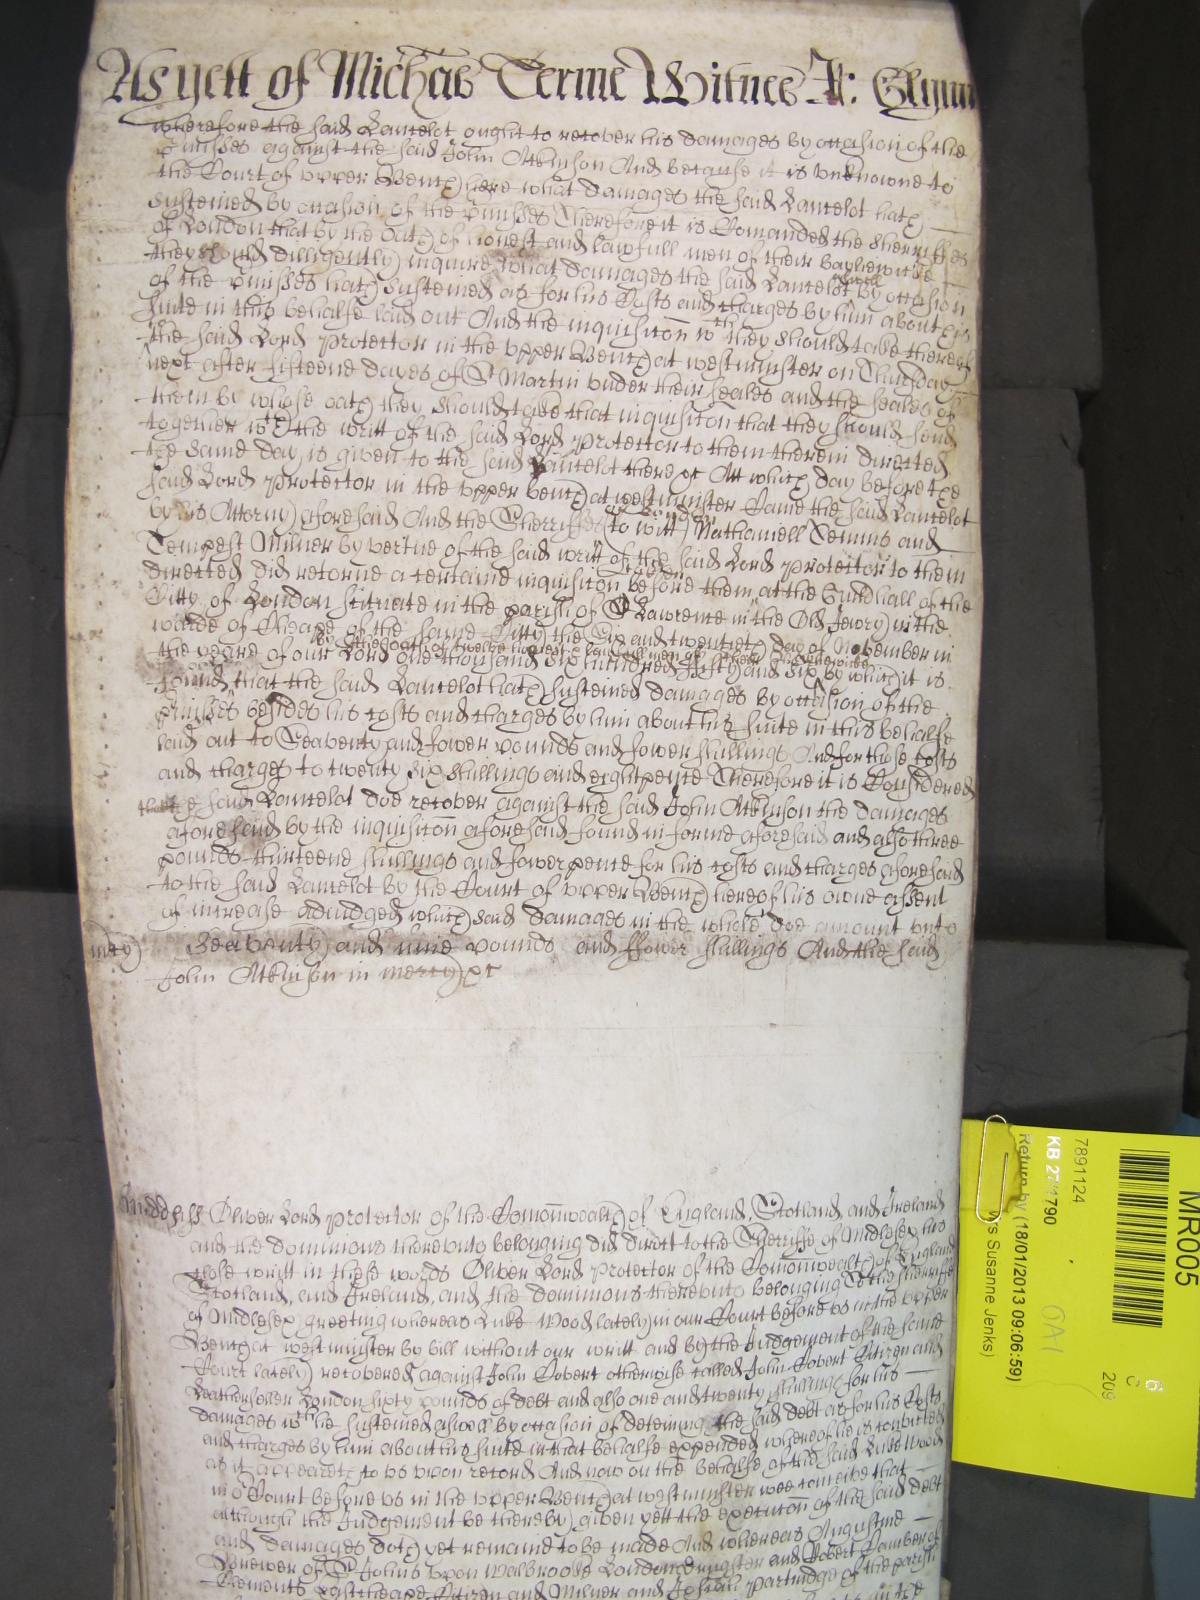 As yett of Michās Terme Witnes J: Glynn
wherefore the said Lancelot ought to recover his damages by occasion of the
p̱misses against the said John Atkinson And because it is unknowne to
the Court of upper Bench here what damages the said Lancelot hath
susteined by occasion of the p̱misses Therefore it is Comanded the Sherriffes
of London that by the oath of honest and lawfull men of their bayliewicke
they should dilligently inquire what damages the said Lancelot aswell by occasion
of the p̱misses hath susteined as for his Costs and charges by him about his
suite in this behalfe laid out And the inquisicōn wch they should take thereof
the said Lord Protector in the upper Bench at westminster on Thursday
next after fifteene dayes of St Martin under their seales and the seales of
them by whose oath they should take that inquisicōn that they should send
together wth the writt of the said Lord Protector to them therein directed
the same day is given to the said Lancelot there &c Att which day before the
said Lord Protector in the upper bench at westminster Came the said Lancelot
by his Attorny aforesaid And the Sherriffes (to witt) Nathaniell Temms and
Tempest Milner by vertue of the said writt of the said Lord Protector to them
directed did retorne a certaine inquisicōn before them at the Guildhall of the
Citty of London scituate in the parish of St Lawrence in the Old Jewry in the
warde of Cheape of the same Citty the Six and twentieth day of November in
the yeare of our Lord one thousand six hundred fifty and six by the oath of twelve honest & lawfull men of their bayliewicke by which it is
found that the said Lancelot hath susteined damages by occasion of the
p̱misses besides his costs and charges by him about his suite in this behalfe
laid out to Seaventy and fower pounds and fower shillings And for those costs
and charges to twenty six shillings and eight pence Therefore it is Considered
that the said Lancelot doe recover against the said John Atkinson the damages
aforesaid by the inquisicōn aforesaid found in forme aforesaid and also three
pounds thirteene shillings and fower pence for his costs and charges aforesaid
to the said Lancelot by the Court of upper Bench here of his owne assent
of increase adiudged which said damages in the whole doe amount unto
mcy) Seaventy and nine pounds and ffower shillings And the said
John Atkinson in mercy &c
Midd ss Oliver Lord Protector of the Comōnwealth of England, Scotland, and Ireland
and the dominions thereunto belonging did direct to the Sherriffe of Midlesex his
close writt in these words Oliver Lord Protector of the Comonwealth of England
Scotland, and Ireland, and the dominions thereunto belonging To the Sherriffe
of Midlesex greeting whereas Luke Wood lately in our Court before us in the upper
Bench at westminster by bill without our writt and by the Judgement of the same
Court lately recovered against John Cobert otherwise called John Cobert Citizen and
Leatherseller London sixty pounds of debt and also one and twenty shillings for his
damages wch he susteined aswell by occasion of deteining the said debt as for his Costs
and charges by him about his suite in that behalfe expended whereof he is convicted
as it appeareth to us upon record And now on the behalfe of the said Luke Wood
in or Court before us in the upper Bench at westminster wee conceive that
although the Judgement be thereby given yett the execucōn of the said debt
and damages doth yet remaine to be made And whereas Augustine
Brewer of St Johns upon Walbrooke London and Robert
Clements Eastcheape Citizen and Milner and Partridge of the parish
MR005
7891124
KB 27/1790
Return by (18/01/2013 09:06:59)
Susanne Jenks)
6
C
209